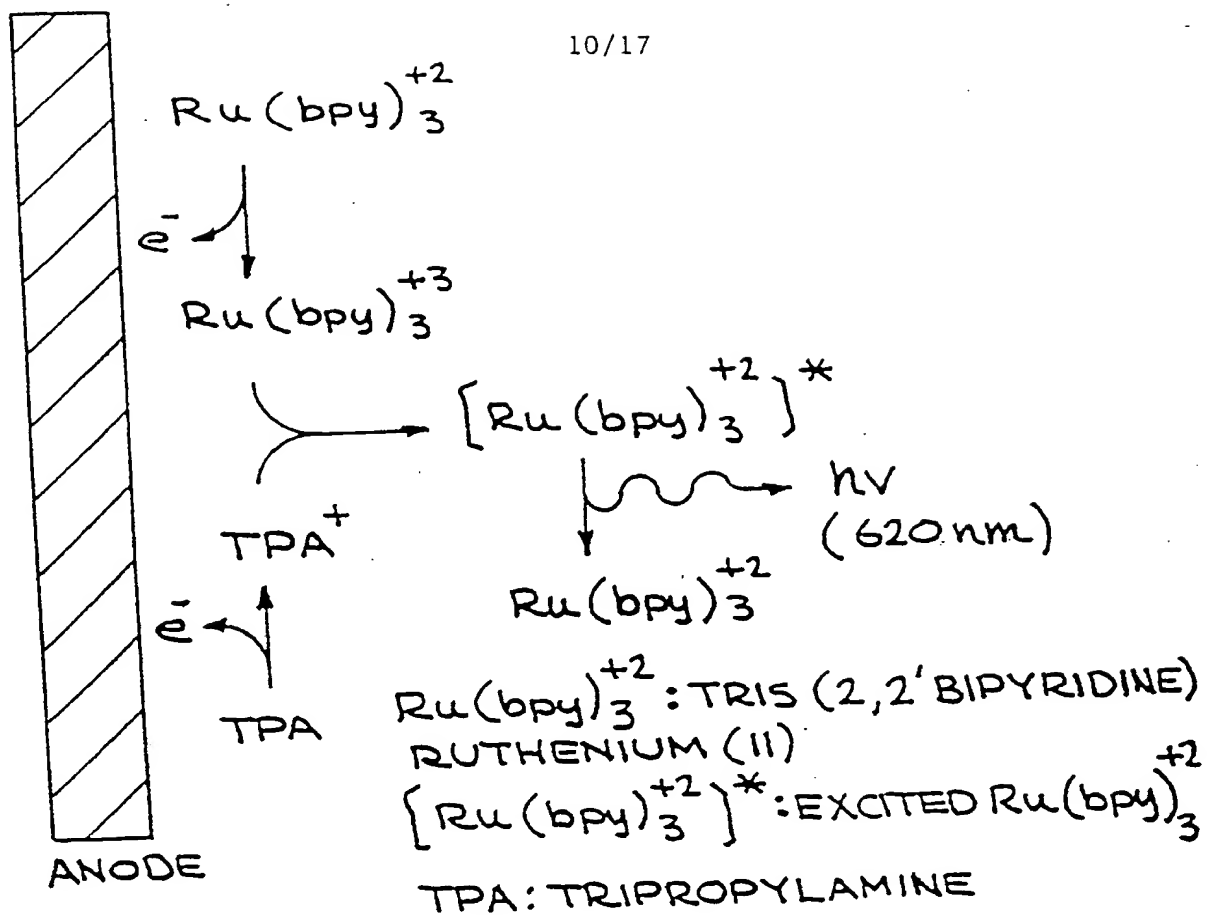 10/17
Ru(bpy)₃⁺²
e⁻
Ru(bpy)₃⁺³
[Ru(bpy)₃⁺²]*
hν
(620 nm)
TPA⁺
Ru(bpy)₃⁺²
e⁻
TPA
Ru(bpy)₃⁺²: TRIS (2,2'BIPYRIDINE)
RUTHENIUM (II)
[Ru(bpy)₃⁺²]*: EXCITED Ru(bpy)₃⁺²
ANODE
TPA: TRIPROPYLAMINE